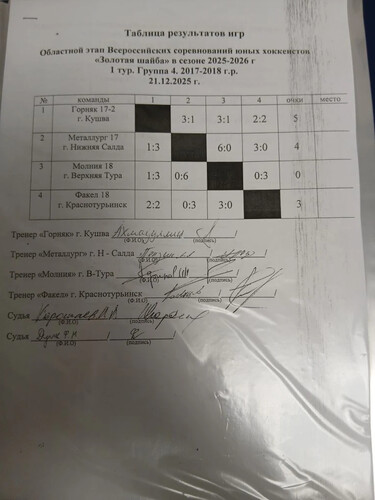 Таблица результатов игр
Областной этап Всероссийских соревнований юных хоккеистов
«Золотая шайба» в сезоне 2025-2026 г
1 тур. Группа 4. 2017-2018 г.р.
21.12.2025 г.
№ команды 1 2 3 4 очки место
1 Горняк 17-2 г. Кушва 3:1 3:1 2:2 5
2 Металлург 17 г. Нижняя Салда 1:3 6:0 3:0 4
3 Молния 18 г. Верхняя Тура 1:3 0:6 0:3 0
4 Факел 18 г. Краснотурьинск 2:2 0:3 3:0 3
Тренер «Горняк» г. Кушва / /
(Ф.И.О) (подпись)
Тренер «Металлург» г. Н - Салда / /
(Ф.И.О) (подпись)
Тренер «Молния» г. В-Тура / /
(Ф.И.О) (подпись)
Тренер «Факел» г. Краснотурьинск / /
(Ф.И.О) (подпись)
Судья / /
(Ф.И.О) (подпись)
Судья / /
(Ф.И.О) (подпись)